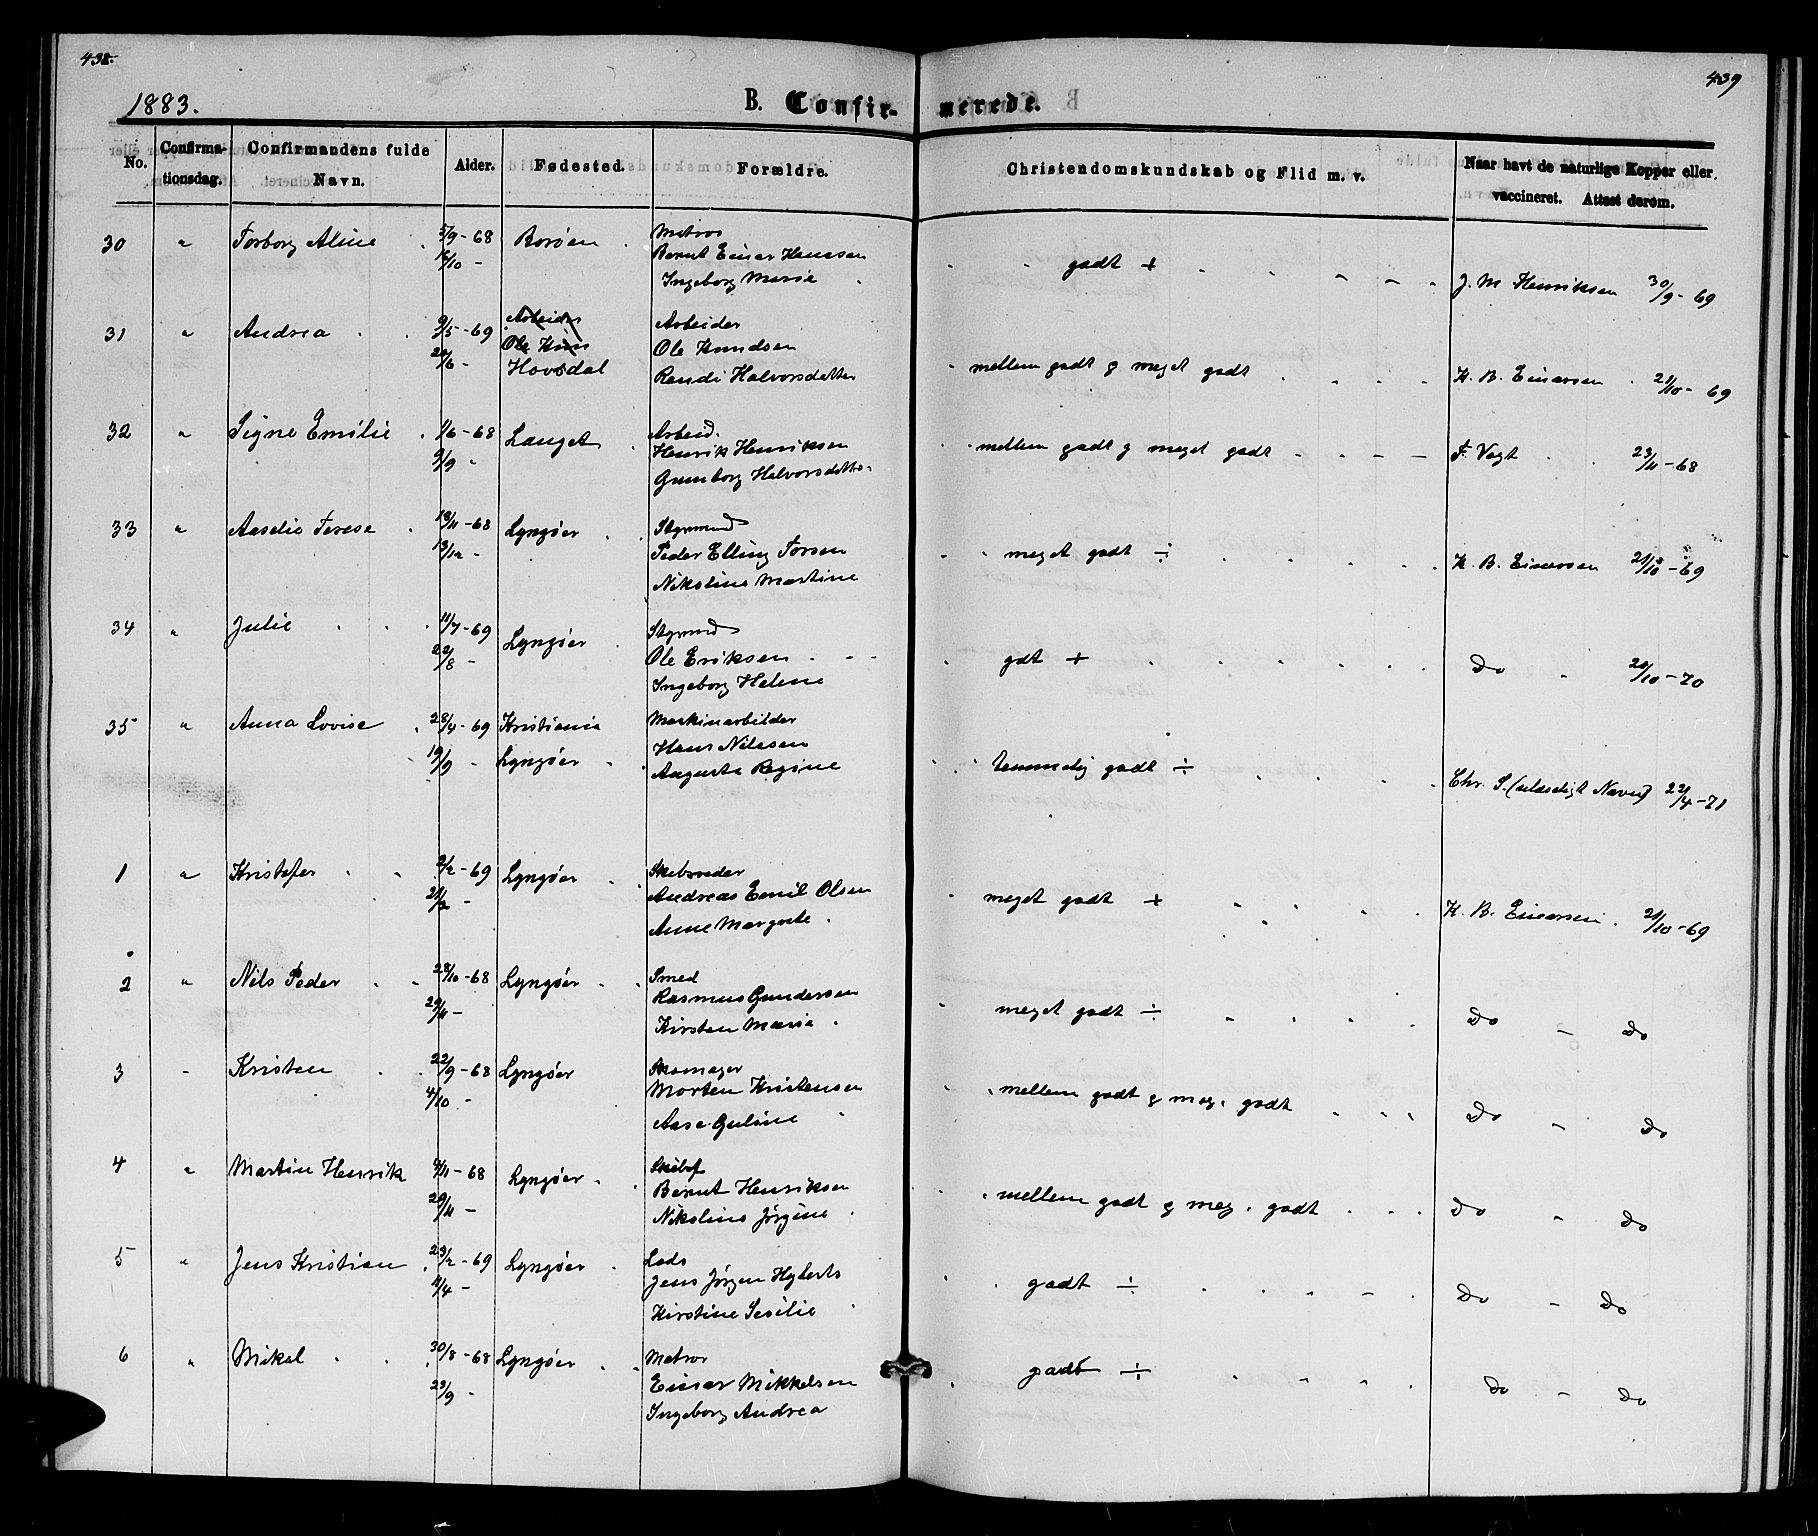 438.
439
1883.
B. Confir-
merede.
No.
Confirma-
tionsdag.
Confirmandens fulde
Navn.
Alder.
Fødested.
Forældre.
Christendomskundskab og Flid m. v.
Naar havt de naturlige Kopper eller
vaccineret. Attest derom.
30 " Torborg Aline 5/9-68 Borøen Matros
16/10 - Bernt Einar Hanssen
Ingeborg Marie
godt +
J. M. Henriksen 30/9-69
31 " Andrea 9/5-69 Arbeider Arbeider
Ole Knus Ole Knudsen
Hovdal Randi Halvorsdatter
mellem godt g meget godt
K. B. Einarsen 21/10-69
32 " Signe Emilie 1/6-68 Langet Arbeid.
9/9 " Henrik Henriksen
Gunborg Halvorsdatter
mellem godt g meget godt
F. Vogt 23/11-68
33 " Aaselie Terese 18/11-68 Lyngøer Styrmand
13/12 - Peder Elling Torsen
Nikoline Martine
meget godt ÷
K. B. Einarsen 21/10-69
34 " Julie 11/7-69 Lyngøer Styrmand
22/8 - Ole Eriksen
Ingeborg Helene
gdt +
Do 20/10-70
35 " Anna Lovise 28/4-69 Kristiania Maskinarbeider
19/9 - Lyngøer Hans Nilssen
Augusta Regine
temmelig godt ÷
Chr. S. (ulæseligt Navn) 22/4-71
1 " Kristofer 2/2-69 Lyngøer Skibsreder
21/3 - Andreas Emil Olsen
Anne Margrete
meget godt +
K. B. Einarsen 21/10-69
2 " Nils Peder 28/10-68 Lyngøer Smed
29/11 - Rasmus Gundersen
Kirsten Marie
meget godt ÷
Do - Do
3 - Kristen 22/9-68 Lyngøer Skomager
4/10 - Morten Kristensen
Aase Guline
mellem godt g meg. godt
Do - Do
4 " Martin Henrik 4/11-68 Lyngøer Skibsf
29/11 - Bernt Henriksen
Nikoline Jørgine
mellem godt g meg. godt
Do " Do
5 " Jens Kristian 23/2-69 Lyngøer Lods
11/4 - Jens Jørgen Hyberts
Kirstine Sesilie
godt ÷
Do - Do
6 " Mikal 30/8-68 Lyngøer Matros
23/9 - Einar Mikkelsen
Ingeborg Andrea
godt ÷
Do - Do